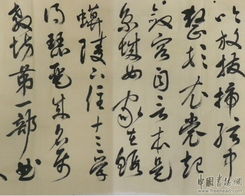 吟放撥插絃中
整頓衣裳起
斂容自言本是
京城女家在蝦
蟆陵下住十三學
得琵琶成名屬
教坊第一部曲